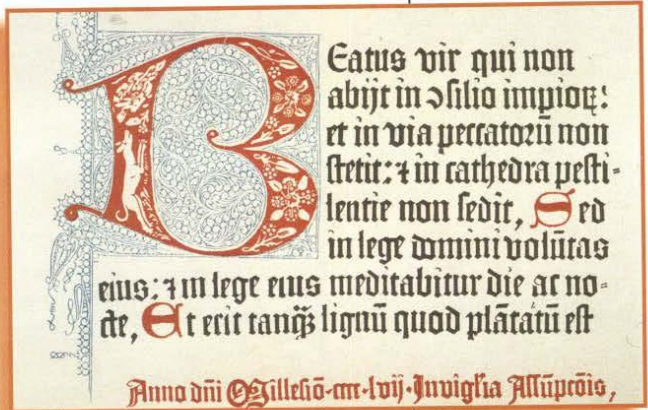 BEatus vir qui non
abijt in ↄsilio impioꝝ:
et in via peccatorū non
stetit: ⁊ in cathedra pesti-
lentie non sedit, Sed
in lege domini volūtas
eius: ⁊ in lege eius meditabitur die ac no-
cte, Et erit tanqꝫ lignū quod plātatū est
Anno dñi Millesiō·cccc·lvij·In vigl'ia Assūpcōis,